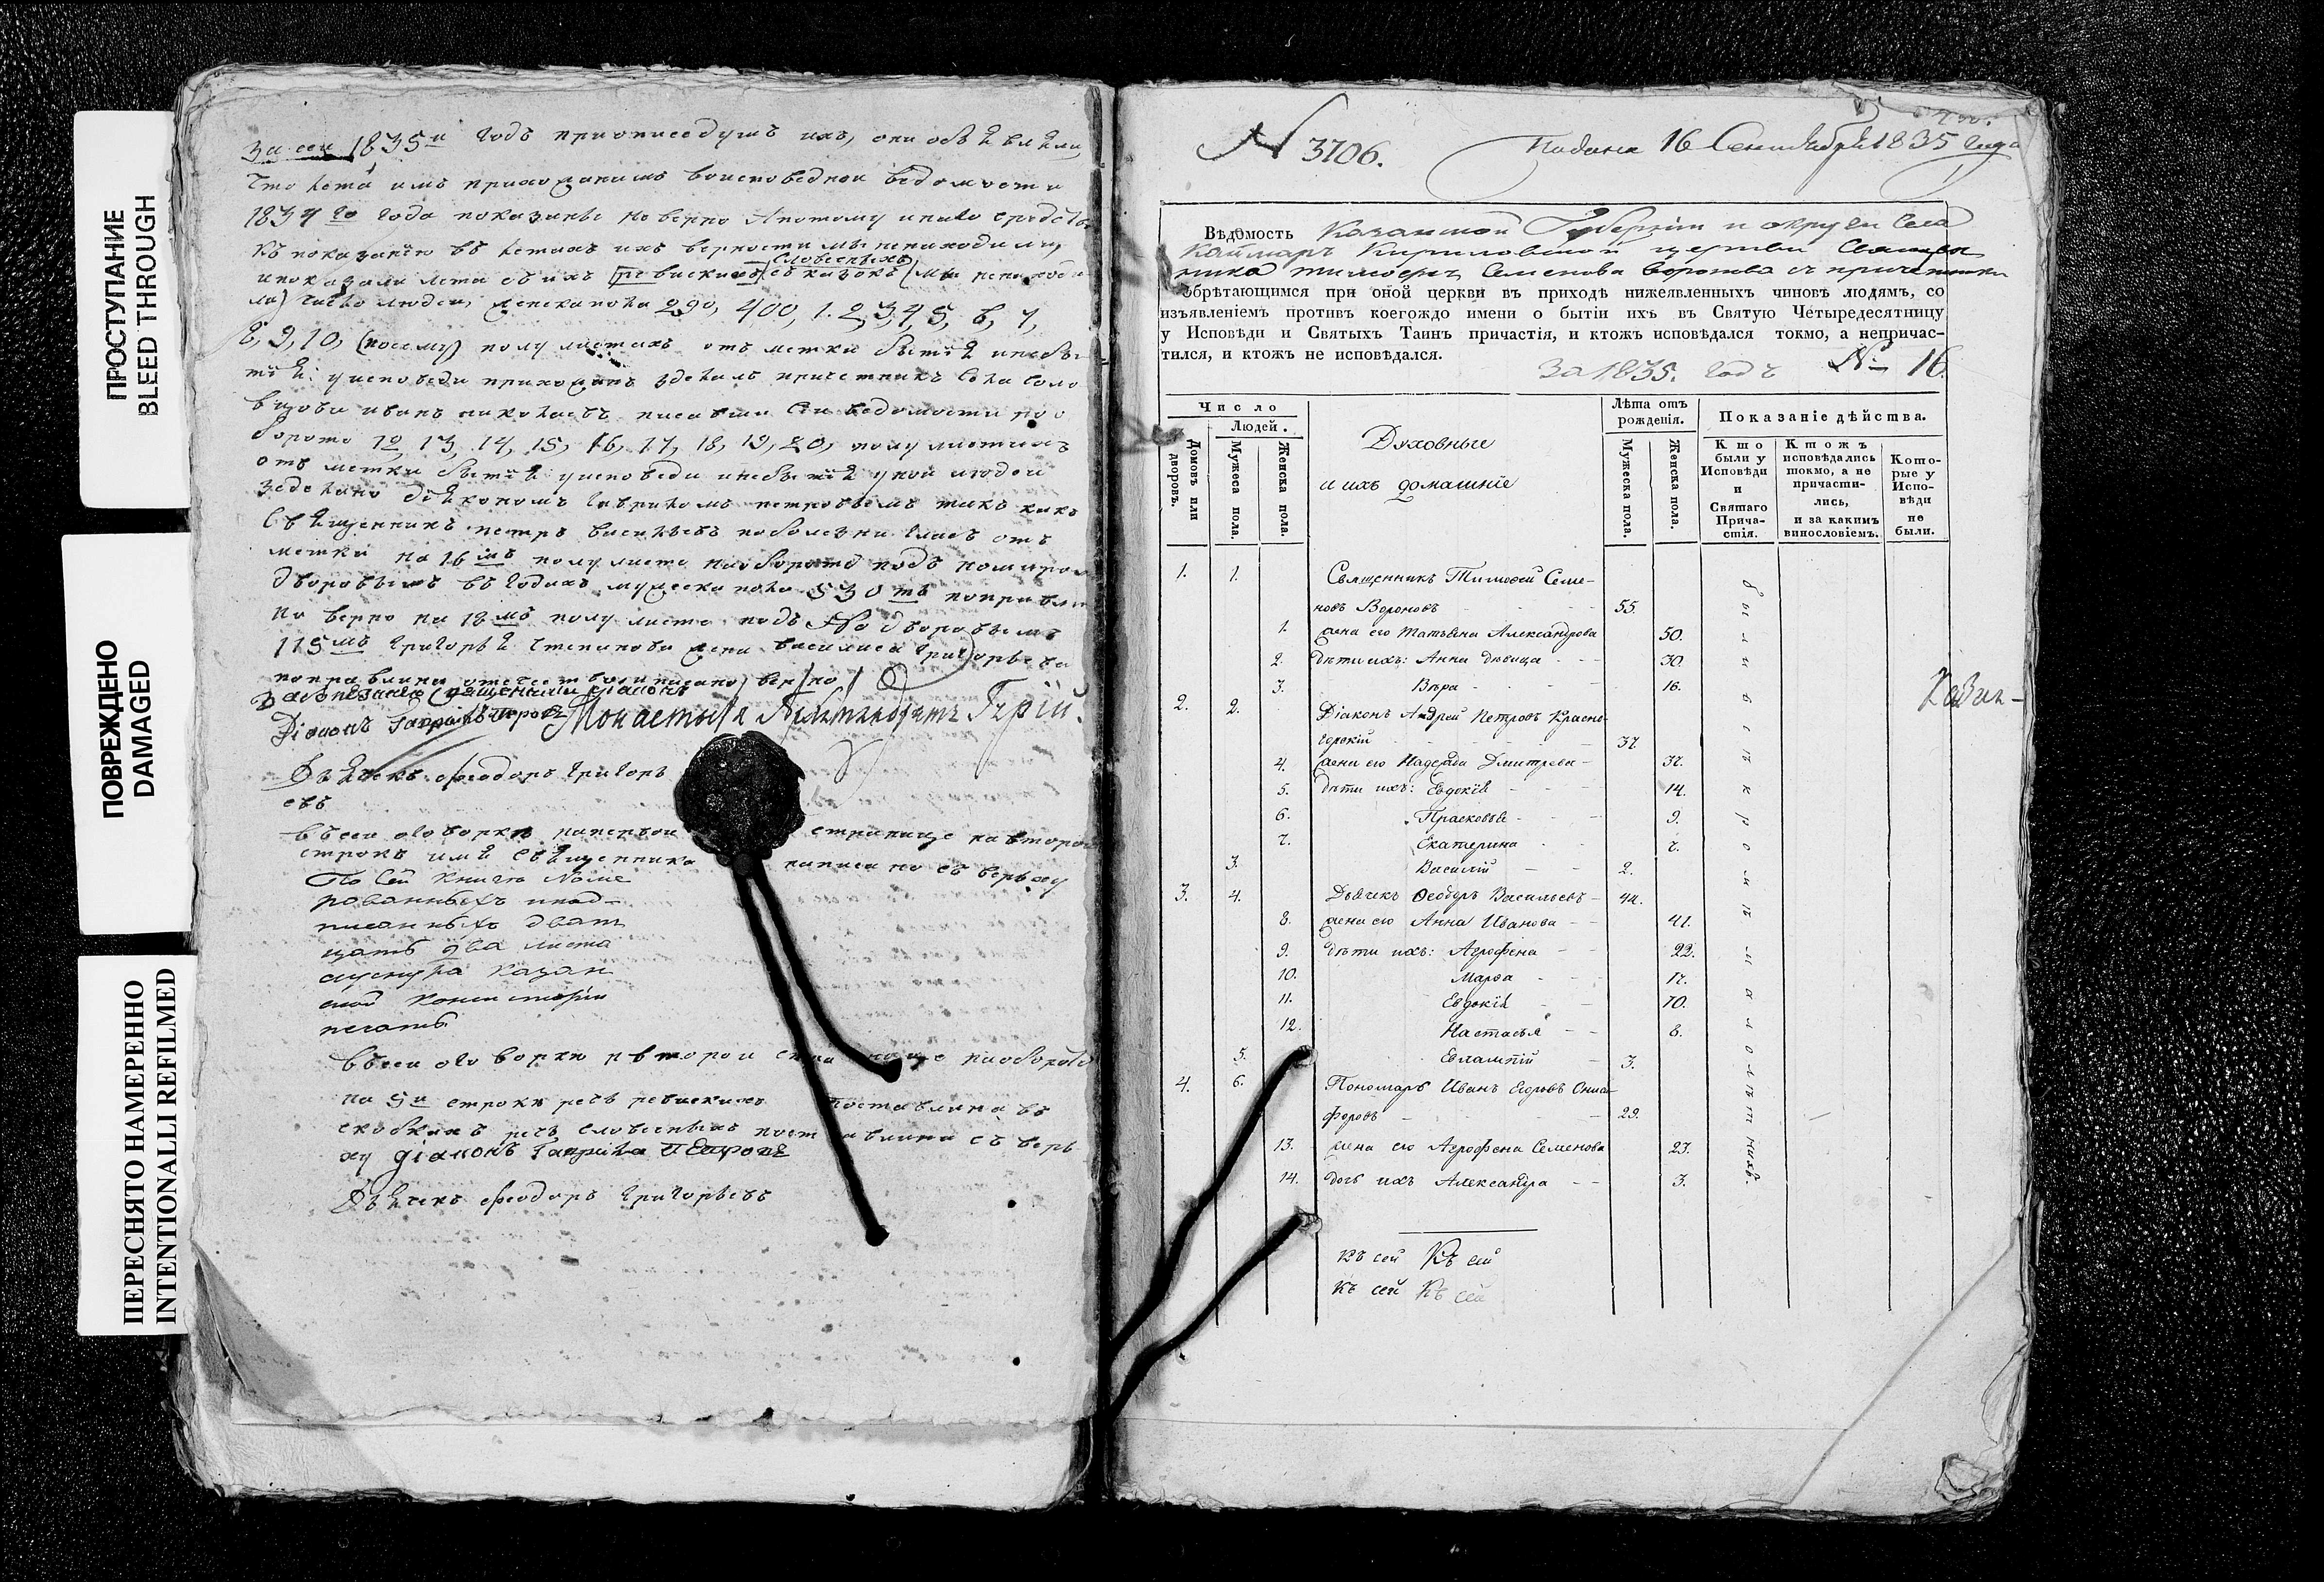 ПРОСТУПАНИЕ
BLEED THROUGH
ПОВРЕЖДЕНО
DAMAGED
ПЕРЕСНЯТО НАМЕРЕННО
INTENTIONALLI REFILMED
за сей 1835й годъ приописе душъ ихъ, они объявляли
что лета имъ прихожанамъ во исповедной ведомости
1834го года показаны не верно а потому инаго средства
къ показанію въ летахъ ихъ верности мы ненаходили,
словесныхъ
и показали лета съ ихъ ревискихъ сказокъ (мы ненаходи
ли) число людей женска пола 290, 400, 1. 2, 3, 4, 5, 6, 7,
8, 9, 10, (посему) полулистахъ отъ метки бытія и небы
тія: у исповеди прихожанъ зделалъ причетникъ села Соло
вцова иванъ николаевъ писавши сіи ведомости по о
борото 12 13, 14, 15, 16, 17, 18, 19, 20, полулистахъ
отъ метки бытія у исповеди и небытія у ной людей
зделано діякономъ Гавриломъ петровымъ такъ какъ
Священникъ петръ васильевъ по болезни глазъ отъ
метки на 16мъ полулисте наоборотѣ подъ номеро
дворовымъ въ годахъ мужеска пола 530тъ поправле
но верно на 18мъ полулисте подъ №о дворовымъ
115мъ Григорья Степанова жена василиса григорьева
Діаконъ Гаврила Петровъ
Дьячекъ феодоръ григорь
евъ
въ сей оговорки наперьвой странице на второй
строкѣ имя священника написано съ верьху
По сей книгѣ номе
рованныхъ и под-
писанныхъ дват
цать два листа
скрепа казан
ской консисторіи
печать
въ сей оговорки на второй странице наоборотѣ
на 5й строки речь ревискихъ поставлена въ
скобкахъ речь словесныхъ поставлена съ верь
ху діаконъ Гаврила Петровъ
Дьячекъ феодоръ григорьевъ
N 3706.
Подана 16 Сентября 1835 года
Вѣдомость Казанской Губерніи и округи Села
Каймаръ Кириловской церкви Священ
ника Тимофея Семенова Воронова съ причетники
обрѣтающимся при оной церкви въ приходѣ нижеявленныхъ чиновъ людямъ, со
изъявленіемъ противъ коегождо имени о бытіи ихъ въ Святую Четыредесятницу
у Исповѣди и Святыхъ Таинъ причастія, и ктожъ исповѣдался токмо, а непричас-
тился, и ктожъ не исповѣдался.
За 1835. годъ № 16.
Число
Людей.
Домовъ или дворовъ.
Мужеса пола.
Женска пола.
Духовные
и ихъ домашніе
Лѣта отъ рожденія.
Мужеска пола.
Женска пола.
Показаніе дѣйства.
Кто были у Исповѣди и Святаго Прича-стія.
Ктожъ исповѣдались токмо, а не причасти-лись, и за какимъ винословіемъ.
Кото-рые у Испо-вѣди не были.
1. 1. Священникъ Тимофей Семе-
новъ Вороновъ 55.
1. жена его Татьяна Александрова 50.
2. дѣти ихъ: Анна дѣвица 30.
3. Вѣра 16.
2. 2. Діаконъ Андрей Петровъ Красно
горскій 37
4. жена его Надежда Дмитрева 37.
5. дѣти ихъ: Евдокія 14.
6. Прасковья 9.
7. Екатерина 7.
3. Василій 2.
3. 4. Дьячекъ Ѳеодоръ Васильевъ 44.
8. жена его Анна Иванова 41.
9. дѣти ихъ: Агрофена 22.
10. Марѳа 17.
11. Евдокія 10.
12. Настасья 8.
5. Евлампій 3.
4. 6. Пономарь Иванъ Егоровъ Ониси
форовъ 29.
13. жена его Агрофена Семенова 23.
14. дочь ихъ Александра 3.
Къ сей Къ сей
Къ сей Къ сей